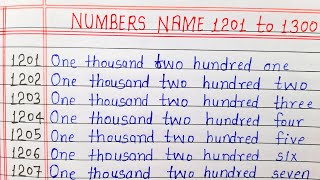 NUMBERS NAME 1201 to 1300
1201 One thousand two hundred one
1202 One thousand two hundred two
1203 One thousand two hundred three
1204 One thousand two hundred four
1205 One thousand two hundred five
1206 One thousand two hundred six
1207 One thousand two hundred seven